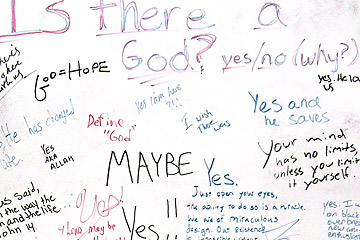 Is there a
God? yes/no (why?)
GOD=HOPE
yes. He
us
Yes I am here
?!!
I wish
There was
Yes and
he saves
He has changed
life.
Define
"God"
YES
AKA
ALLAH
MAYBE
Your mind
has no limits,
unless you limit
it yourself.
Yes.
Just open your eyes,
the ability to do so is a miracle.
We are of miraculous
design. Our existence
said,
the way the
and the life...
John 14
Yes!
may be
Yes!
yes. I